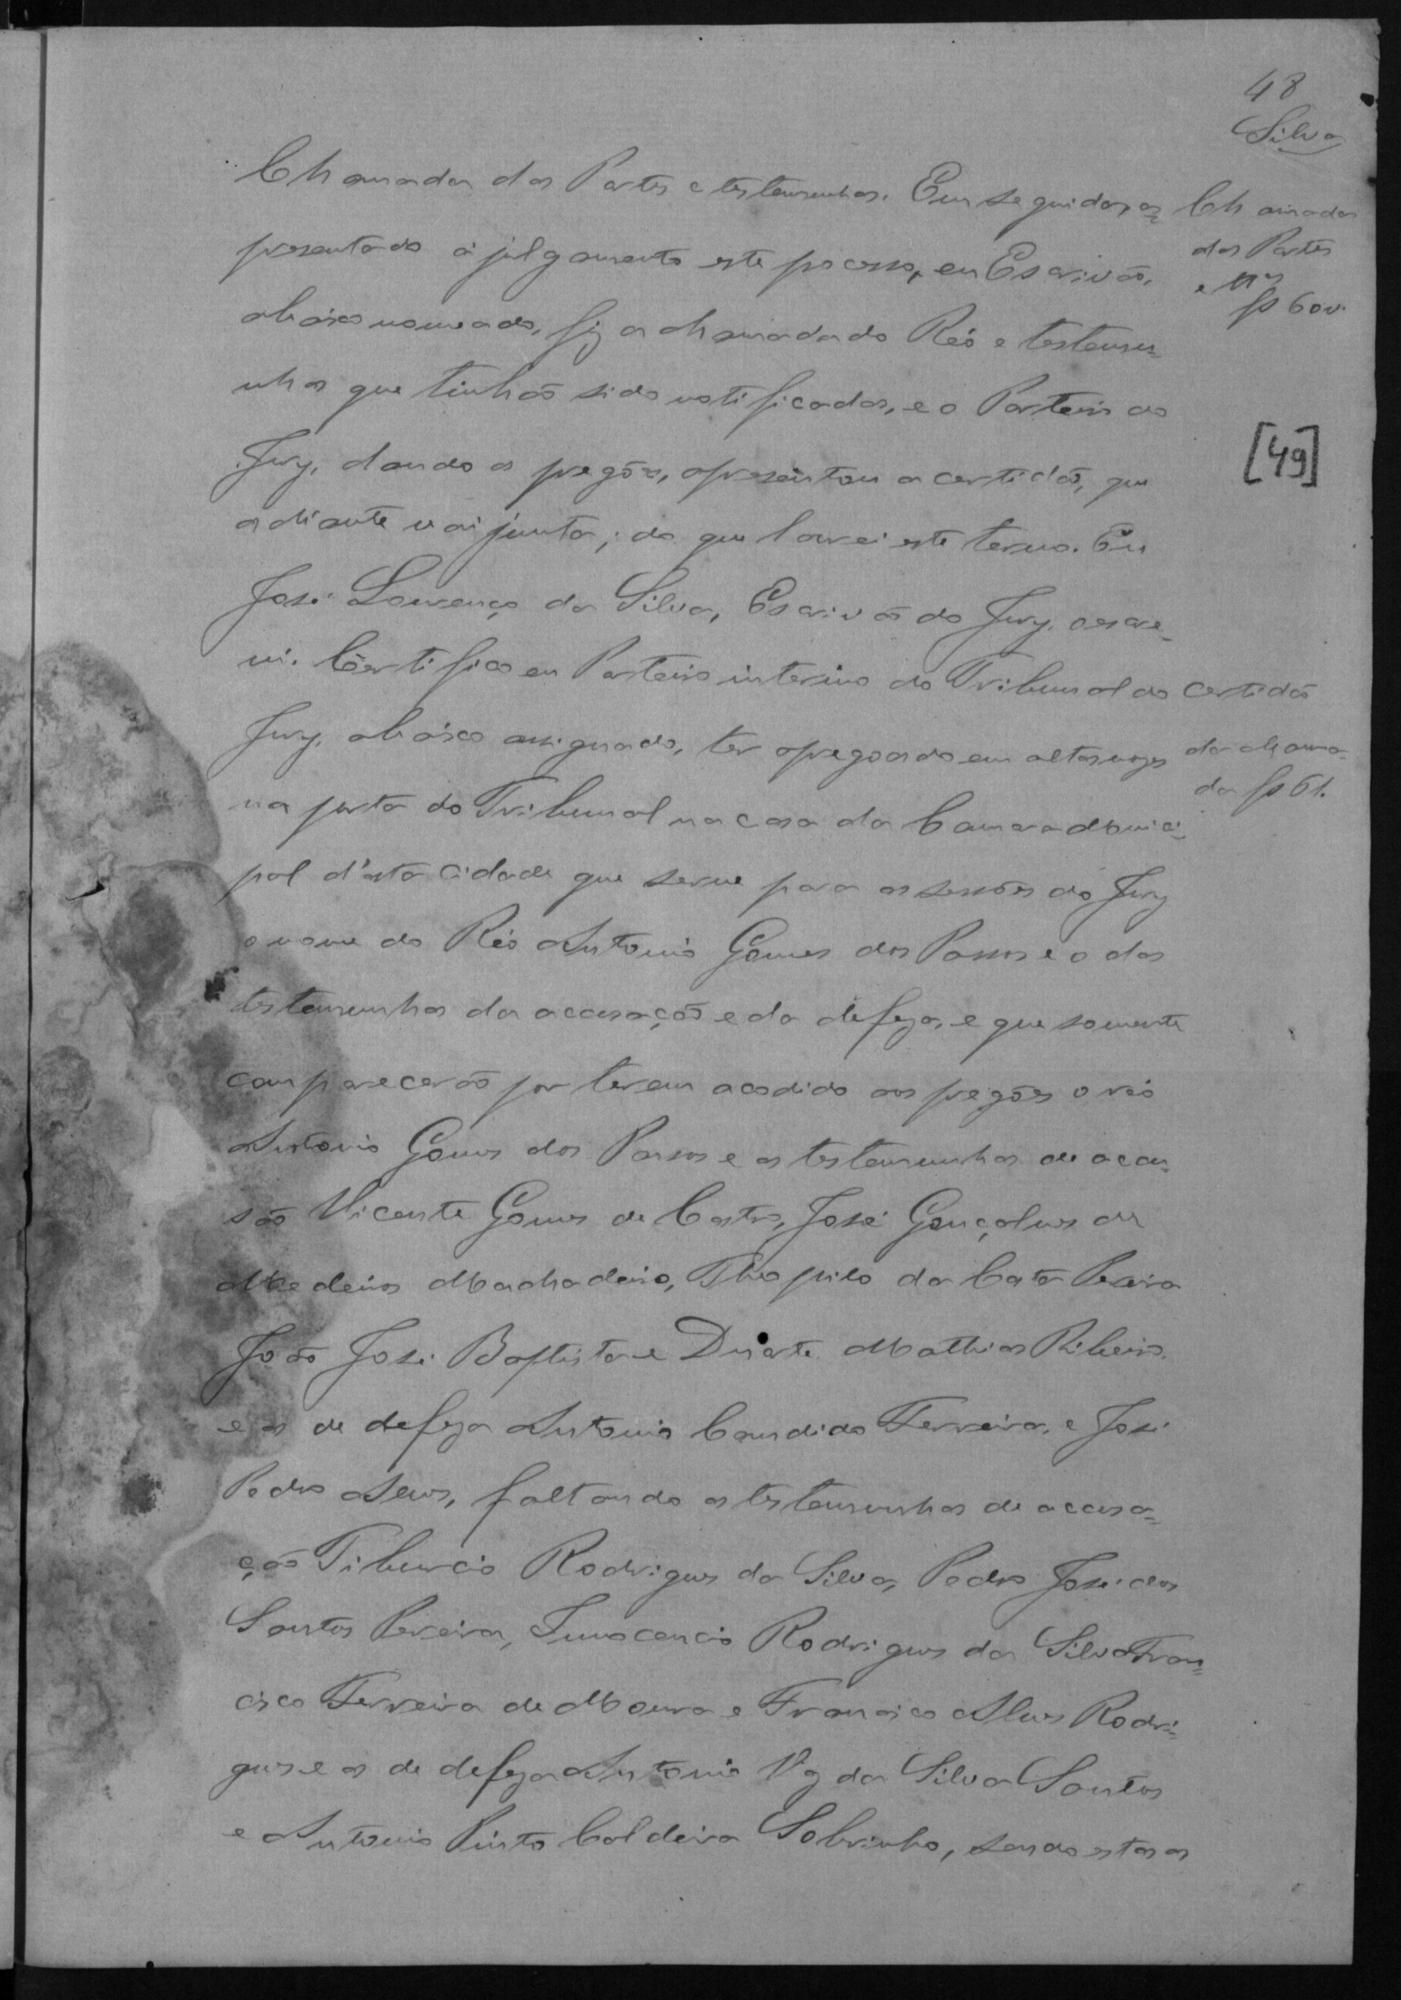 48
Silva
Chamada das Partes e testemunhas. Em seguida, a=
presentado á julgamento este processo, eu Escrivão,
abaixo nomeado, fiz a chamada do Réo e testemu=
nhas que tinhão sido notificadas, e o Porteiro do
Jury, dando os pregões, apresentou a certidão, que
adiante vai junta; do que lavrei este termo. Eu
José Lourenço da Silva, Escrivão do Jury, o escre=
vi. Certifico eu Porteiro interino do Tribunal do
Jury, abaixo assignado, ter apregoado em altas vozes
na porta do Tribunal na casa da Camara Munici=
pal d'esta cidade que serve para as sessões do Jury
o nome do Réo Antonio Gomes dos Passos e o das
testemunhas da accusação e da defeza, e que somente
comparecerão por terem acodido aos pregões o réo
Antonio Gomes dos Passos e as testemunhas de accu=
são Vicente Gomes de Castro, José Gonçalves de
Medeiros Machadeiro, Theopilo da Cata Pereira
João José Baptista e Duarte Mathias Ribeiro
e as de defeza Antonio Candido Ferreira, e José
Pedro Alves, faltando as testemunhas de accusa=
ção Tiburcio Rodrigues da Silva, Pedro José dos
Santos Pereira, Innocencio Rodrigues da Silva Fran=
cisco Ferreira de Moura e Francisco Alves Rodri=
gues e as de defeza Antonio Vz da Silva Santos
e Antonio Pinto Caldeira Sobrinho, sendo estas as
Chamada
das Partes
e
fs 60v.
[49]
certidão
da chama=
da fs 61.